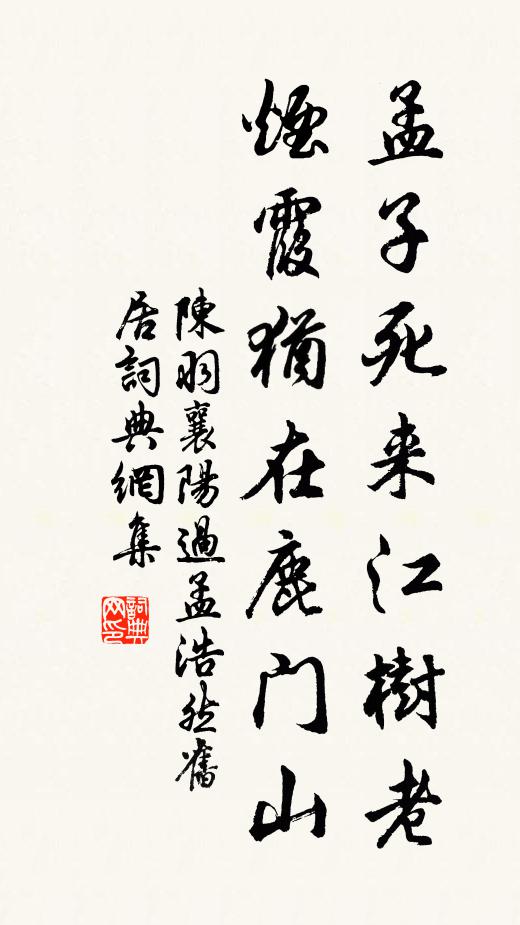 孟子死来江樹老
煙霞猶在鹿門山
陳羽襄陽過孟浩然舊
居詞典網集
詞典网印